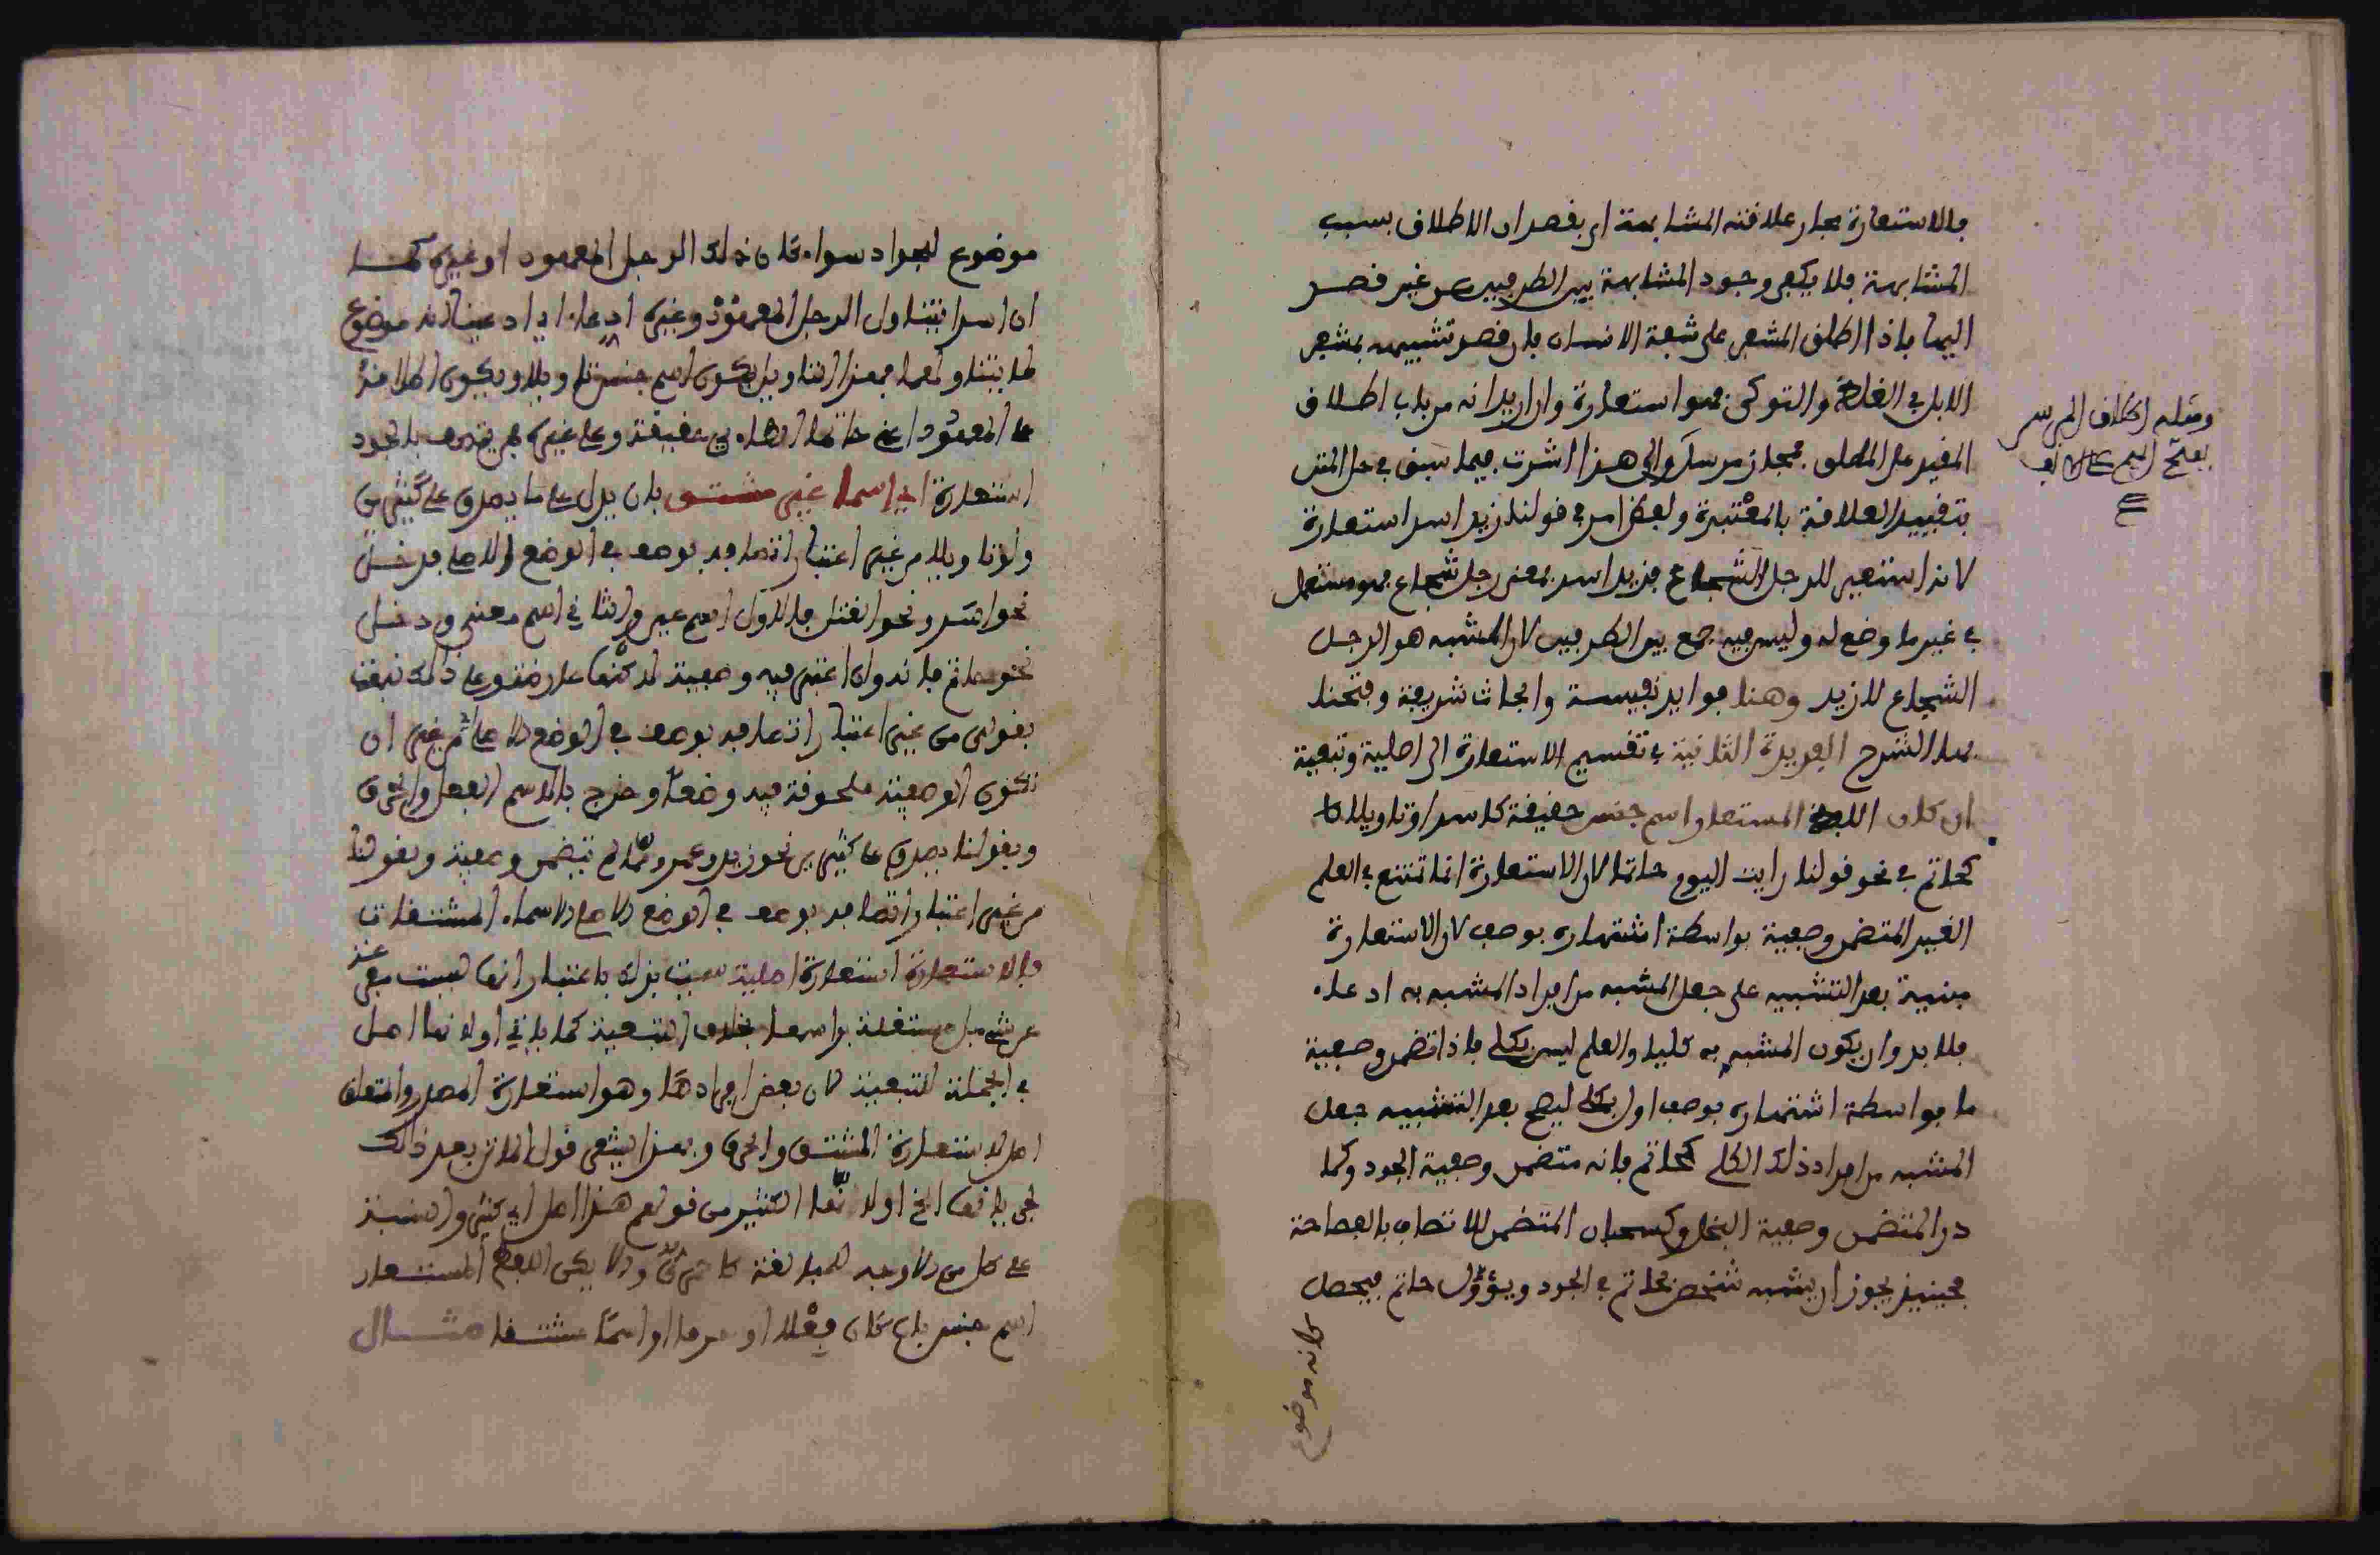 فالاستعارة مجاز علاقته المشابهة اي بقصد ان الاطلاق بسبب
المشابهة فلا يكفي وجود المشابهة بين الطرفين من غير قصد
اليها فاذا اطلق المشفر على شفة الانسان فان قصد تشبيهه بمشفر
الابل في الغلظ والتدلي فهو استعارة وان اريد انه من باب اطلاق
المقيد على المطلق فمجاز مرسل والى هذا اشرت فيما سبق في حل المتن
بتقييد العلاقة بالمعتبرة ولفظ اسد في قولنا زيد اسد استعارة
لانه استعير للرجل الشجاع فزيد اسد بمعنى رجل شجاع فهو مستعمل
في غير ما وضع له وليس فيه جمع بين الطرفين لان المشبه هو الرجل
الشجاع لا زيد وهنا فوايد نفيسة وابحاث شريفة
الشرح الفريدة الثانية في تقسيم الاستعارة الى اصلية وتبعية
ان كان اللفظ المستعار اسم جنس حقيقة كاسد او تاويلا
كحاتم في نحو قولنا رايت اليوم حاتما لان الاستعارة انما تمتنع في العلم
الغير المتضمن وصفية بواسطة اشتهاره بوصف لان الاستعارة
مبنية بعد التشبيه على جعل المشبه من افراد المشبه به ادعاء
فلا بد وان يكون المشبه به كليا والعلم ليس بكلي فاذا تضمن وصفية
ما بواسطة اشتهاره بوصف اول بكلي ليصح بعد التشبيه جعل
المشبه من افراد ذلك الكلي كحاتم فانه متضمن وصفية الجود وكما
در المتضمن وصفية البخل وكسحبان المتضمن للاتصاف بالفصاحة
فحينئذ يجوز ان يشبه شخص بحاتم في الجود ويؤول حاتم فيجعل
كانه موضوع
ومثله اطلاق المرسن
بفتح الميم على الانف
موضوع للجواد سواء كان ذلك الرجل المعهود او غيره كما
ان اسدا يتناول الرجل المعهود وغيره ادعاء
فبهذا التاويل يكون اسم جنس تاويلا ويكون اطلاقه
على المعهود اعني حاتما الطاءي حقيقة وعلى غيره ممن يتصف بالجود
استعارة اي اسما غير مشتق بان يدل على ما يصدق على كثيرين
ولو تاويلا من غير اعتبار اتصافه بوصف في الوضع الاصلي فدخل
نحو اسد ونحو القتل فالاول اسم عين والثاني اسم معنى ودخل
نحو حاتم فانه وان اعتبر فيه وصفية لكنها عارضة وعلى ذلك نبهت
بقولي من غير اعتبار اتصافه بوصف في الوضع الاصلي من غير ان
تكون الوصفية ملحوظة فيه وضعا وخرج بالاسم الفعل والحرف
وبقولنا يصدق على كثيرين نحو زيد وعمرو مما لم يتضمن وصفية وبقولنا
من غير اعتبار اتصافه بوصف في الوضع الاصلي الاسماء المشتقات
فالاستعارة استعارة اصلية سميت بذلك باعتبار انها ليست متفرعة
عن شيء بل مستقلة براسها بخلاف التبعية كما ياتي او لانها اصل
في الجملة للتبعية لان بعض افرادها وهو استعارة المصدر والمتعلق
اصل لاستعارة المشتق والحرف وبهذا يشعر قول الماتن بعد ذلك
لجريانها الخ او لانها الكثير من قولهم هذا اصل اي كثير والنسبة
على كل من الاوجه للمبالغة كاحمري والا يكن اللفظ المستعار
اسم جنس بان كان فعلا او حرفا او اسما مشتقا مثال